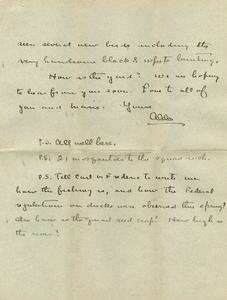 seen several new birds including the
very handsome black & white bunting.
How is the yard? We are hoping
to hear from you soon. Love to all of
you and
Yours
Aldo
P.S. All well here.
P.S. 21 mosquitoes to the square inch.
P.S. Tell Carl or Frederic to write me
how the fishing is, and how the Federal
regulations on ducks were observed this spring?
Also how is the quail seed crop? How high is
the river?